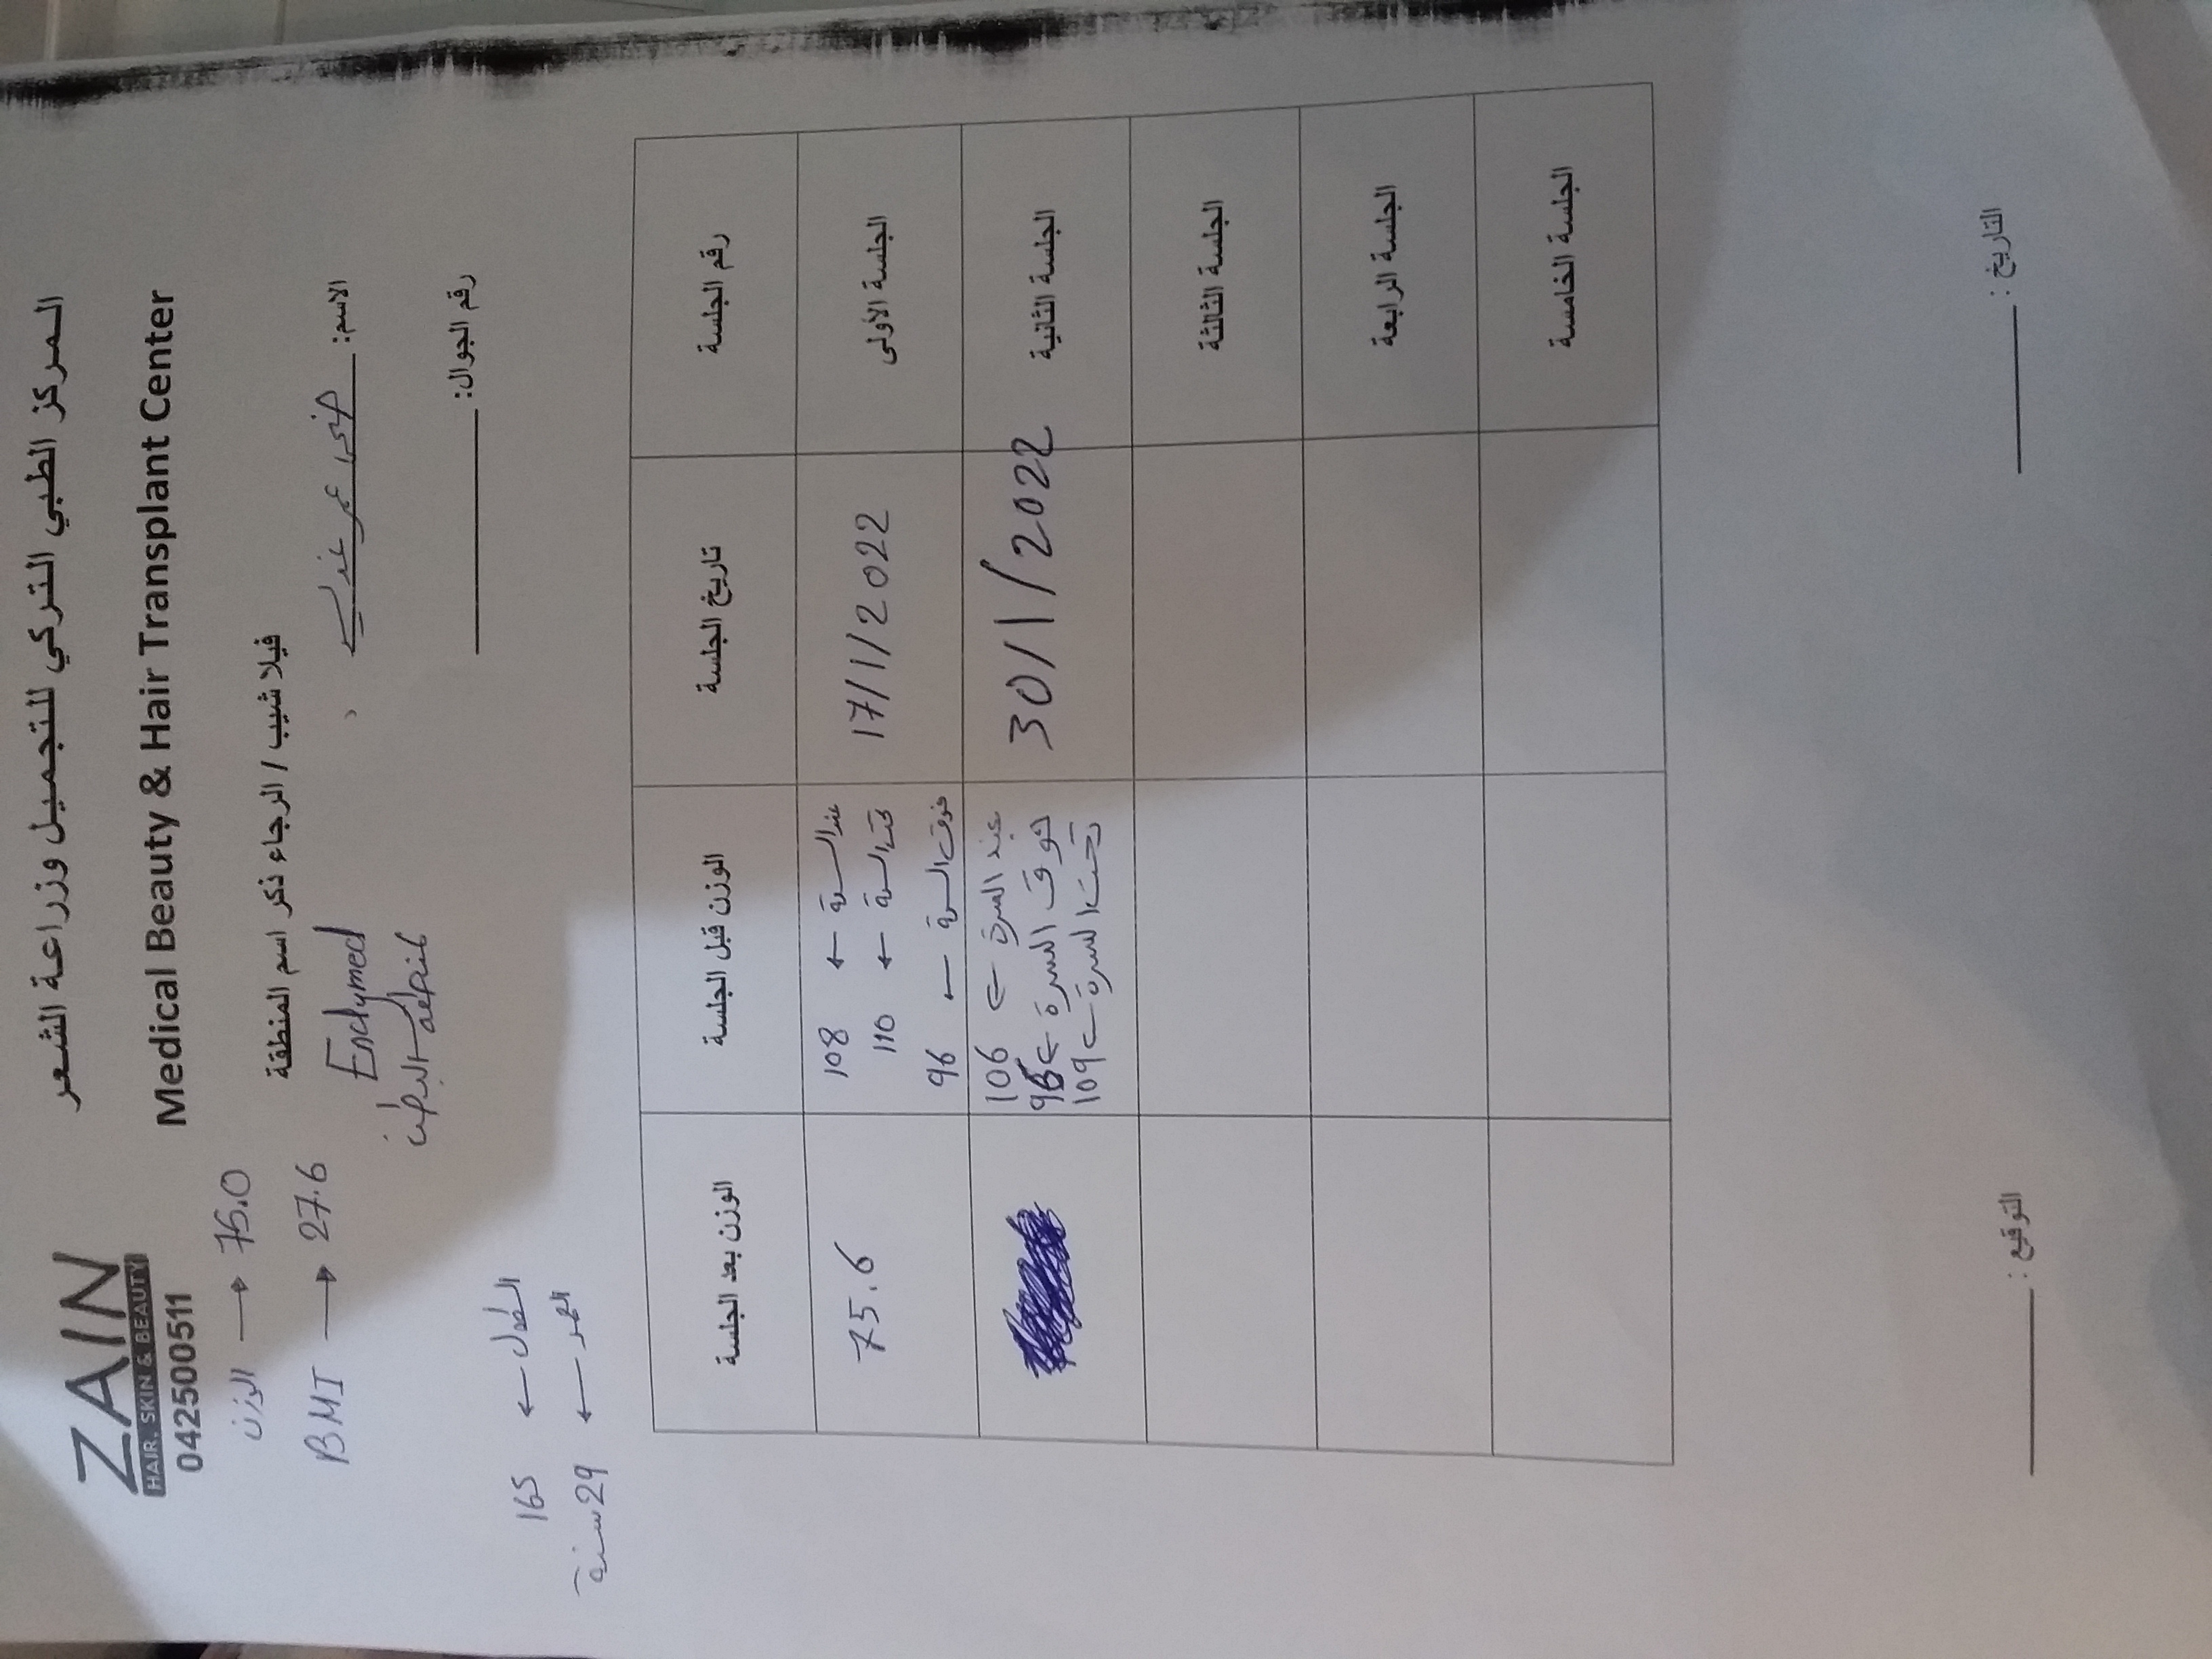 المركز الطبي التركي للتجميل وزراعة الشعر
ZAIN
HAIR, SKIN & BEAUTY
0425000511
Medical Beauty & Hair Transplant Center
الوزن → 75.0
BMI → 27.6
فيلا شيب / الرجاء ذكر اسم المنطقة
Endymed
منطقة البطن
الاسم: ضحى عمر
رقم الجوال:
الطول ← 165
العمر ← 29 سنة
رقم الجلسة تاريخ الجلسة الوزن قبل الجلسة الوزن بعد الجلسة
الجلسة الأولى 17/1/2022 عند السرة ← 108 75.6
تحت السرة ← 110
فوق السرة ← 96
الجلسة الثانية 30/1/2022 عند السرة ← 106
فوق السرة ←
تحت السرة ← 109
الجلسة الثالثة
الجلسة الرابعة
الجلسة الخامسة
التاريخ : التوقيع :